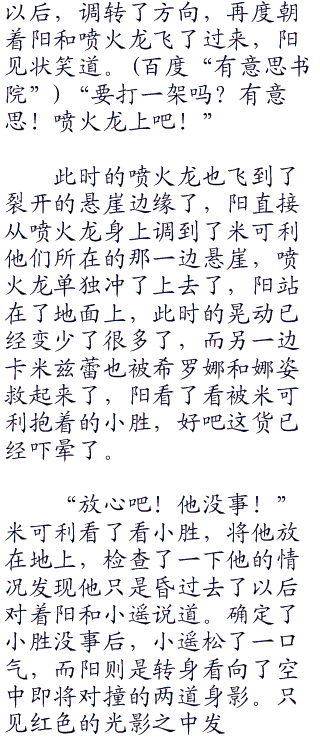 以后，调转了方向，再度朝
着阳和喷火龙飞了过来，阳
见状笑道。（百度“有意思书
院”）“要打一架吗？有意
思！喷火龙上吧！”
此时的喷火龙也飞到了
裂开的悬崖边缘了，阳直接
从喷火龙身上调到了米可利
他们所在的那一边悬崖，喷
火龙单独冲了上去了，阳站
在了地面上，此时的晃动已
经变少了很多了，而另一边
卡米兹蕾也被希罗娜和娜姿
救起来了，阳看了看被米可
利抱着的小胜，好吧这货已
经吓晕了。
“放心吧！他没事！”
米可利看了看小胜，将他放
在地上，检查了一下他的情
况发现他只是昏过去了以后
对着阳和小遥说道。确定了
小胜没事后，小遥松了一口
气，而阳则是转身看向了空
中即将对撞的两道身影。只
见红色的光影之中发